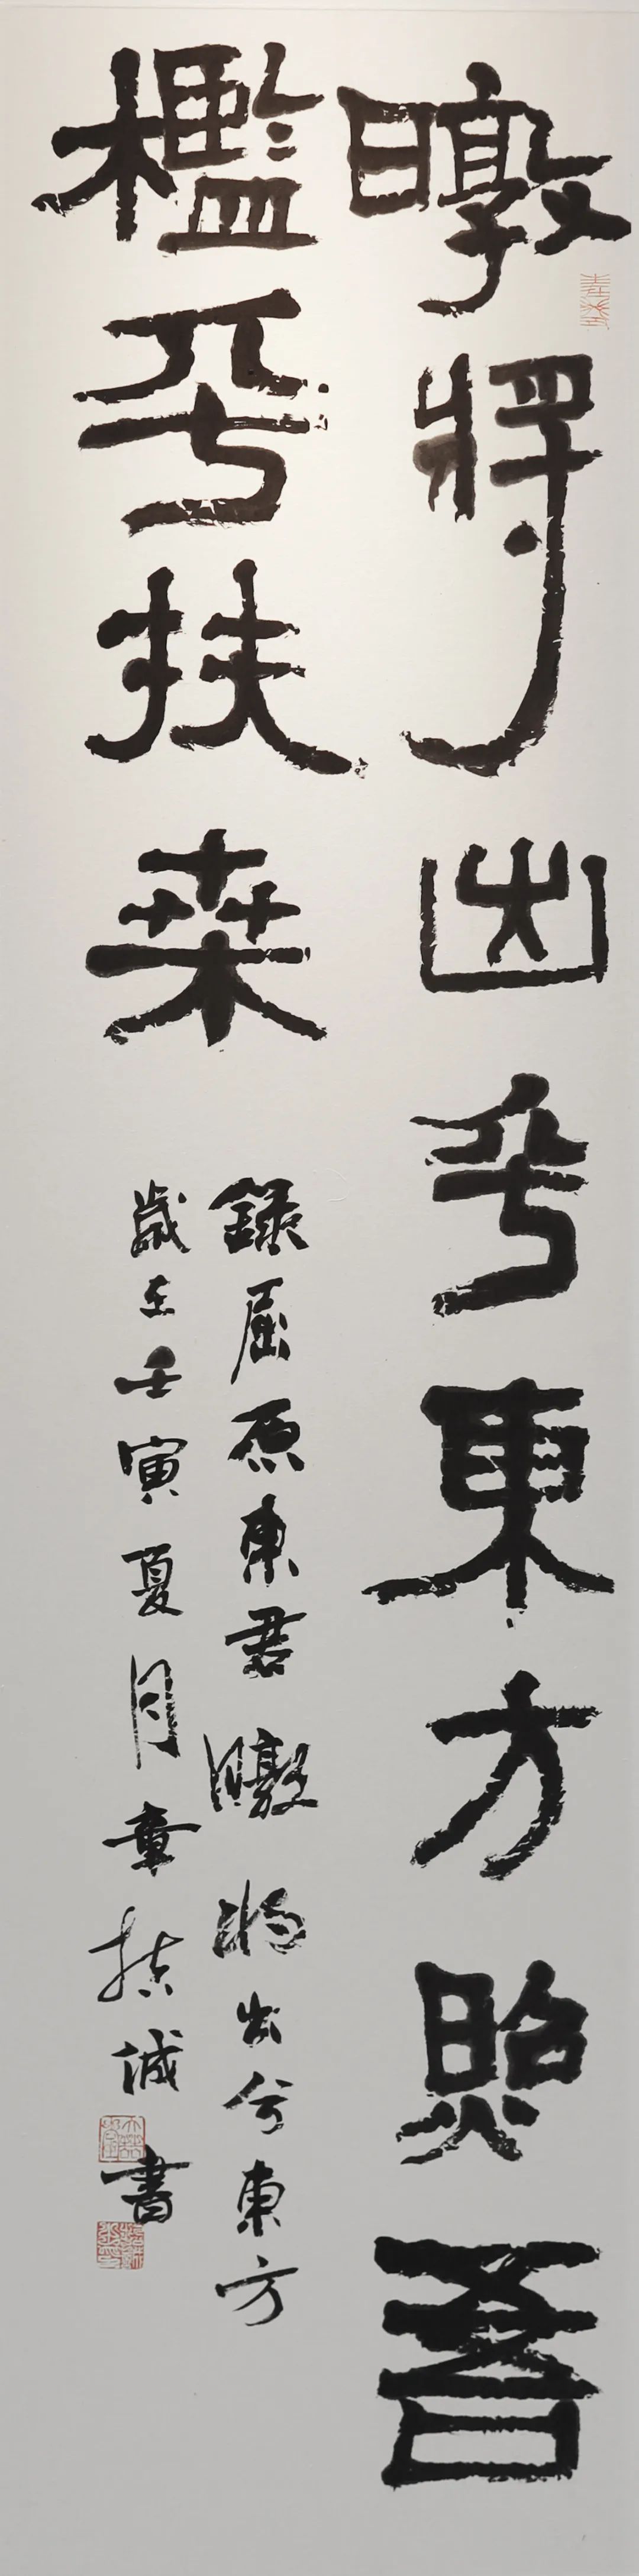 暾將出兮東方照吾
檻兮扶桑
錄屈原東君暾將出兮東方
歲在壬寅夏月章振誠書